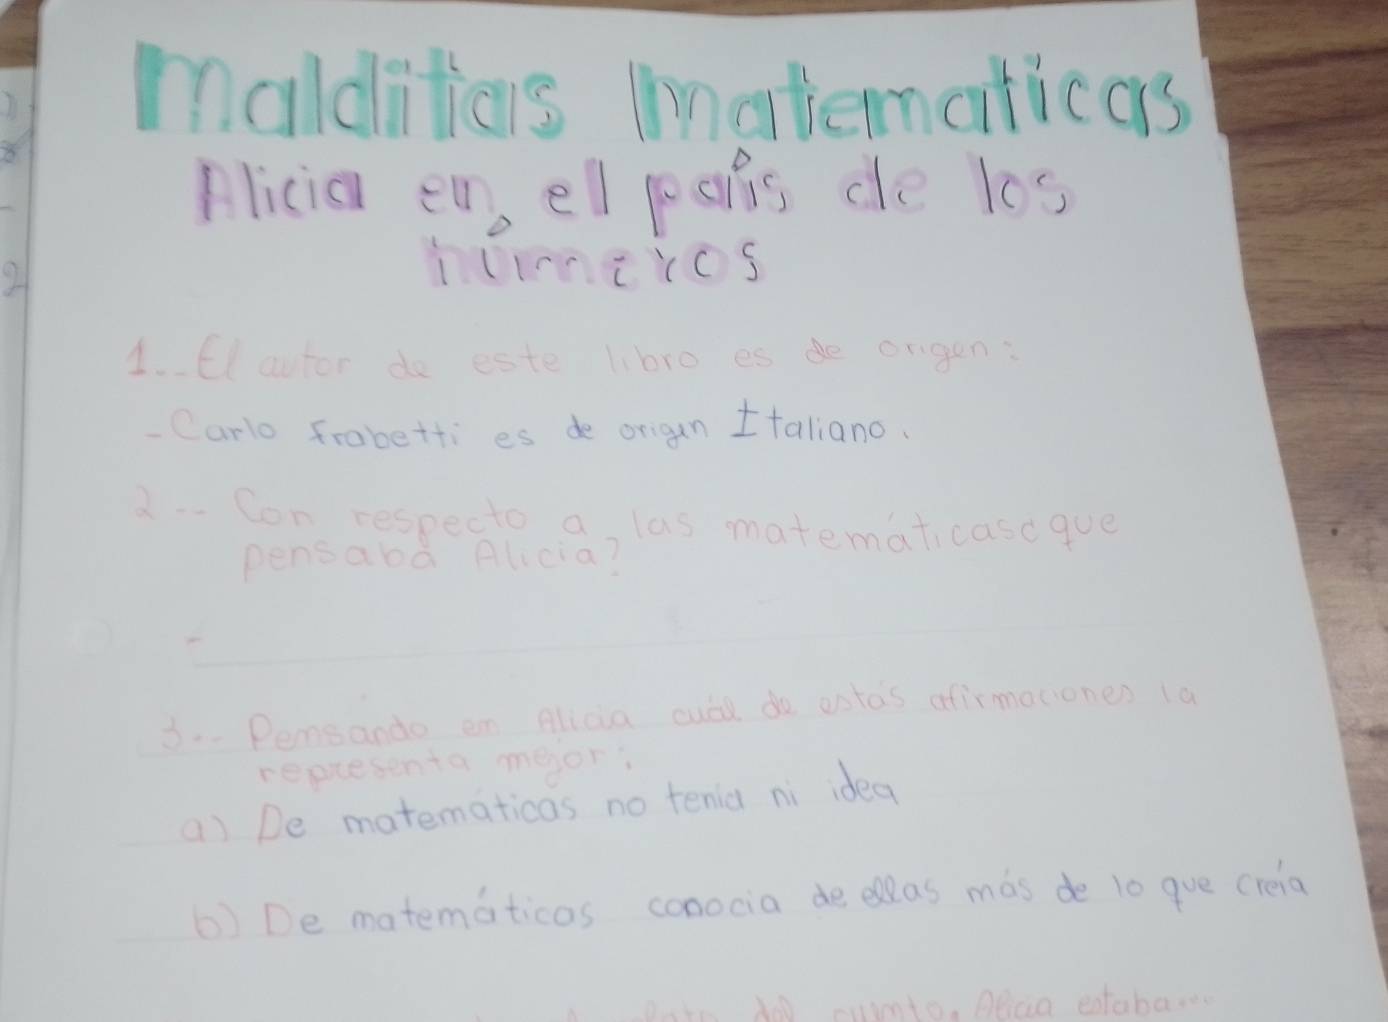 Malditas matematicas
Alicia en el país de los
números
1... El autor de este libro es de origen:
- Carlo frabetti es de origen Italiano.
2 -- Con respecto a las matemáticas¿que
pensaba Alicia?
-
3.-- Pensando en Alicia cuál de estás afirmaciones la
representa mejor:
a) De matemáticas no tenia ni idea
b) De matemáticas conocia de ellas más de lo que creía
del cuento, Alicia estaba...